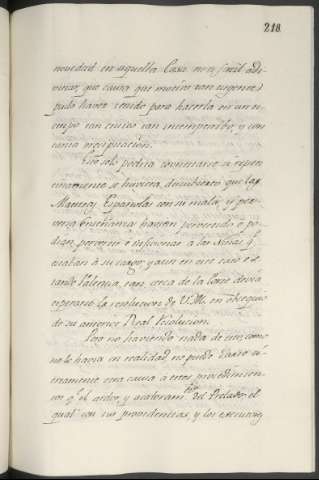 218
novedad en aquella Casa no es facil adi-
vinar, que causa, que motivo tan urgente
pudo haver tenido para hacerla en un ti-
empo tan critico tan intempestivo, y con
tanta precipitacion.
Esto solo podria cohonestarse si repen-
tinamente se huviera descubierto que las
Maestras Españolas con su mala, y per-
versa enseñanza havian pervertido o po-
dian pervertir e inficionar a las Niñas q.
estaban à su cargo, y aun en este caso es-
tando Palencia tan cerca de la Corte devia
esperarse la resolucion de V.M. en obsequio
de su anterior Real resolucion.
Pero no haviendo nada de esto como
no le havia en realidad no pudo darse ci-
ertamente otra causa à estos procedimien-
tos q. el ardor, y acaloram.to del Prelado, el
qual con sus providencias, y los executores